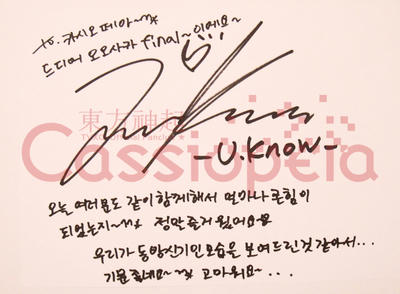 to. 카시오페아~**
드디어 오오사카 final~이에요~
東方神起
Cassiopeia
-U.Know-
오늘 여러분도 같이 함께해서 얼마나 큰힘이
되었는지~** 정말 즐거웠어요~
우리가 동방신기인 모습을 보여드린것 같아서...
기분좋네요~* 고마워요~...